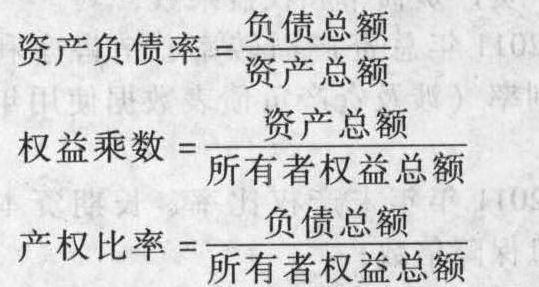 资产负债率=负债总额/资产总额
权益乘数=资产总额/所有者权益总额
产权比率=负债总额/所有者权益总额